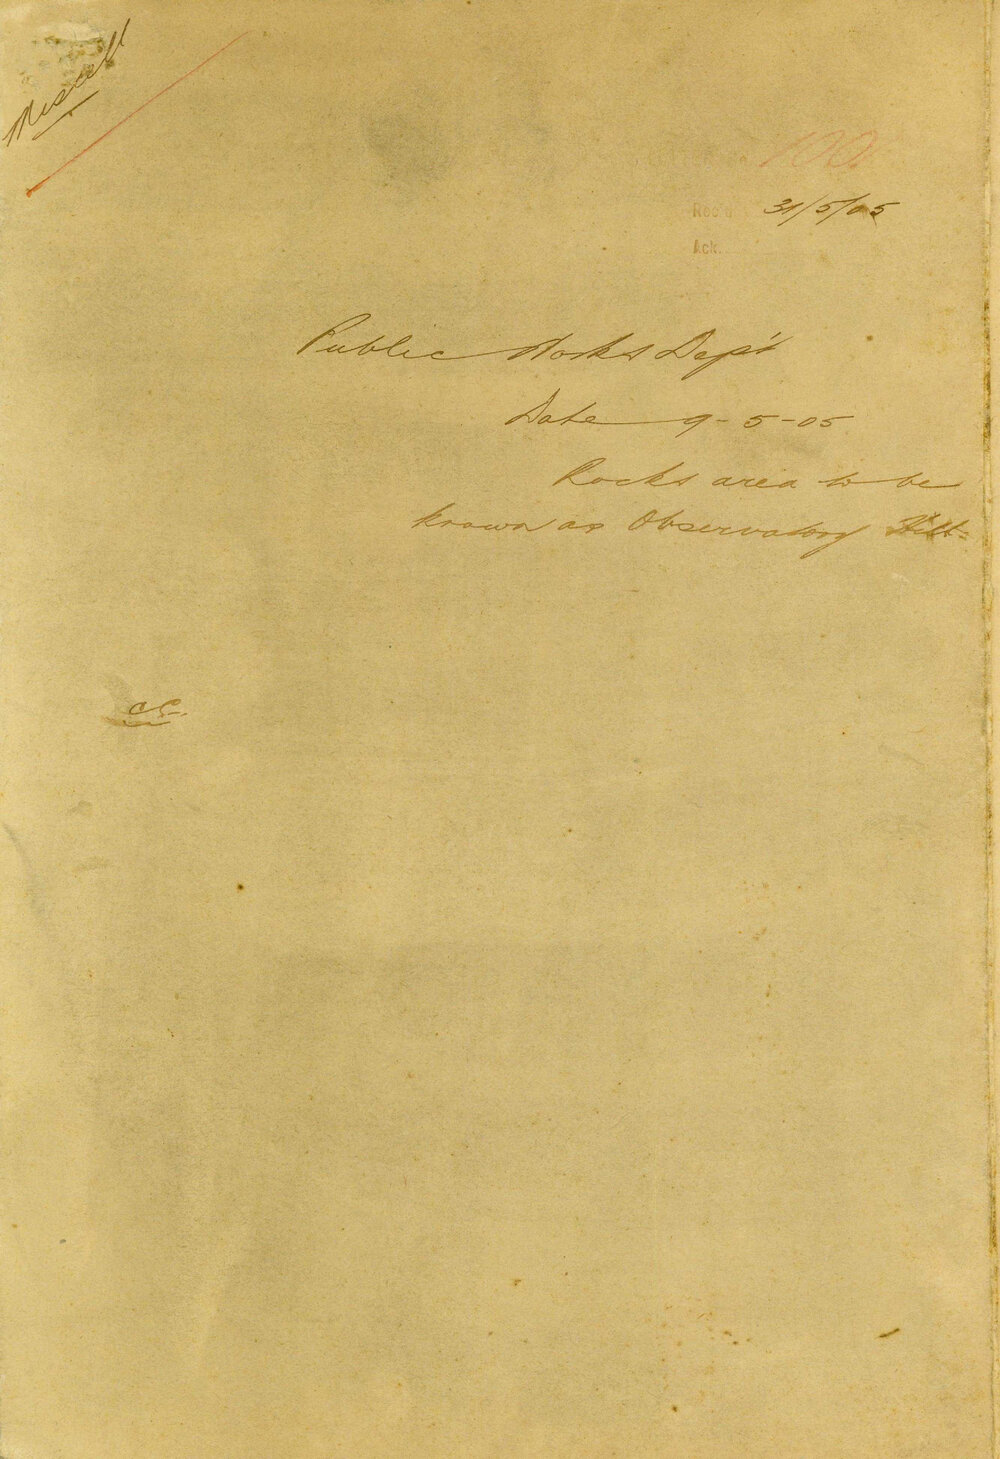 Miscell
100
Rec'd 31/5/05
Ack.
Public Works Dep't
Date 9-5-05
Rocks area to be
known as Observatory Hill=